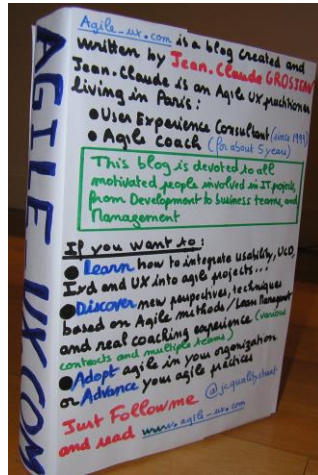 AGILE UX.COM
Agile_ux.com is a blog created and
written by Jean.Claude GROSJEAN
Jean.Claude is an Agile UX practitioner
living in Paris:
● User Experience Consultant (since 1999)
● Agile Coach (for about 5 years)
This blog is devoted to all
motivated people involved in IT projects,
from Development to business teams, and
Management
If you want to:
● Learn how to integrate usability, UCD,
IxD and UX into agile projects...!
● Discover new perspectives, techniques
based on Agile methods / Lean Management
and real coaching experience (various
contexts and multiple teams)
● Adopt agile in your organization
or Advance your agile practices
Just Follow me @jcqualitystreet
and read www.agile_ux.com